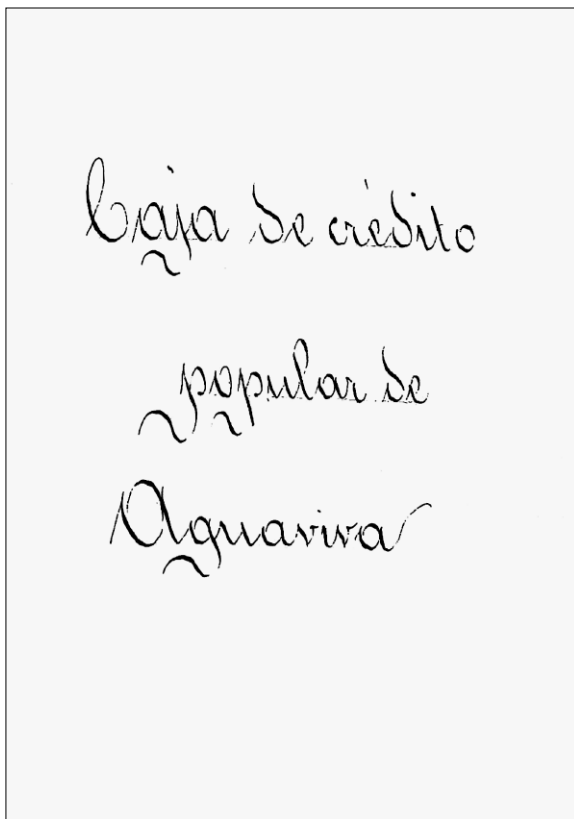 Caja de crédito
popular de
Aguaviva